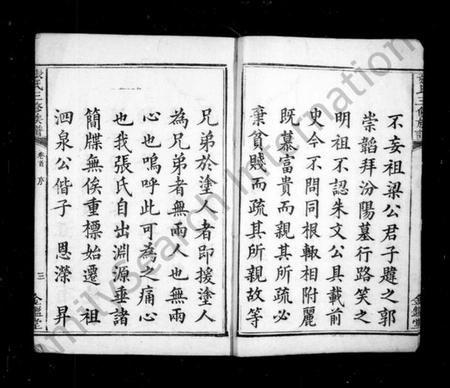 不妄祖梁公君子韙之郭
崇韜拜汾陽墓行路笑之
明祖不認朱文公具載前
史今不問同根輙相附麗
既慕富貴而親其所疏必
棄貧賤而疏其所親故等
兄弟於塗人者即援塗人
為兄弟者無兩人也無兩
心也嗚呼此可為之痛心
也我張氏自出淵源垂諸
簡牒無俟重標始遷 祖
泗泉公偕子 恩濚 昇
張氏三修族譜 卷首 序 三
FamilySearch International